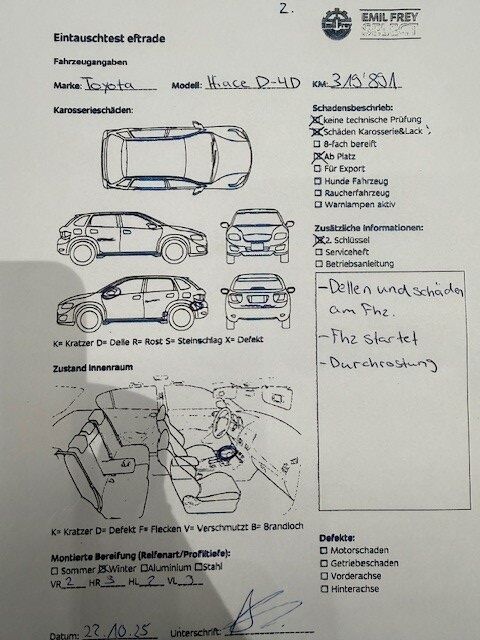 2.
EMIL FREY
SELECT
Emil Frey
Eintauschtest eftrade
Fahrzeugangaben
Marke: Toyota Modell: Hiace D-4D KM: 319'891
Karosserieschäden:
Schadensbeschrieb:
☒ keine technische Prüfung
☒ Schäden Karosserie&Lack
☐ 8-fach bereift
☒ Ab Platz
☐ Für Export
☐ Hunde Fahrzeug
☐ Raucherfahrzeug
☐ Warnlampen aktiv
Zusätzliche Informationen:
☒ 2. Schlüssel
☐ Serviceheft
☐ Betriebsanleitung
- Dellen und schäden
am Fhz.
- Fhz startet
- Durchrostung
K= Kratzer D= Delle R= Rost S= Steinschlag X= Defekt
Zustand Innenraum
K= Kratzer D= Defekt F= Flecken V= Verschmutzt B= Brandloch
Montierte Bereifung (Reifenart/Profiltiefe):
☐ Sommer ☒ Winter ☐ Aluminium ☐ Stahl
VR 2 HR 3 HL 2 VL 3
Defekte:
☐ Motorschaden
☐ Getriebeschaden
☐ Vorderachse
☐ Hinterachse
Datum: 22.10.25 Unterschrift: